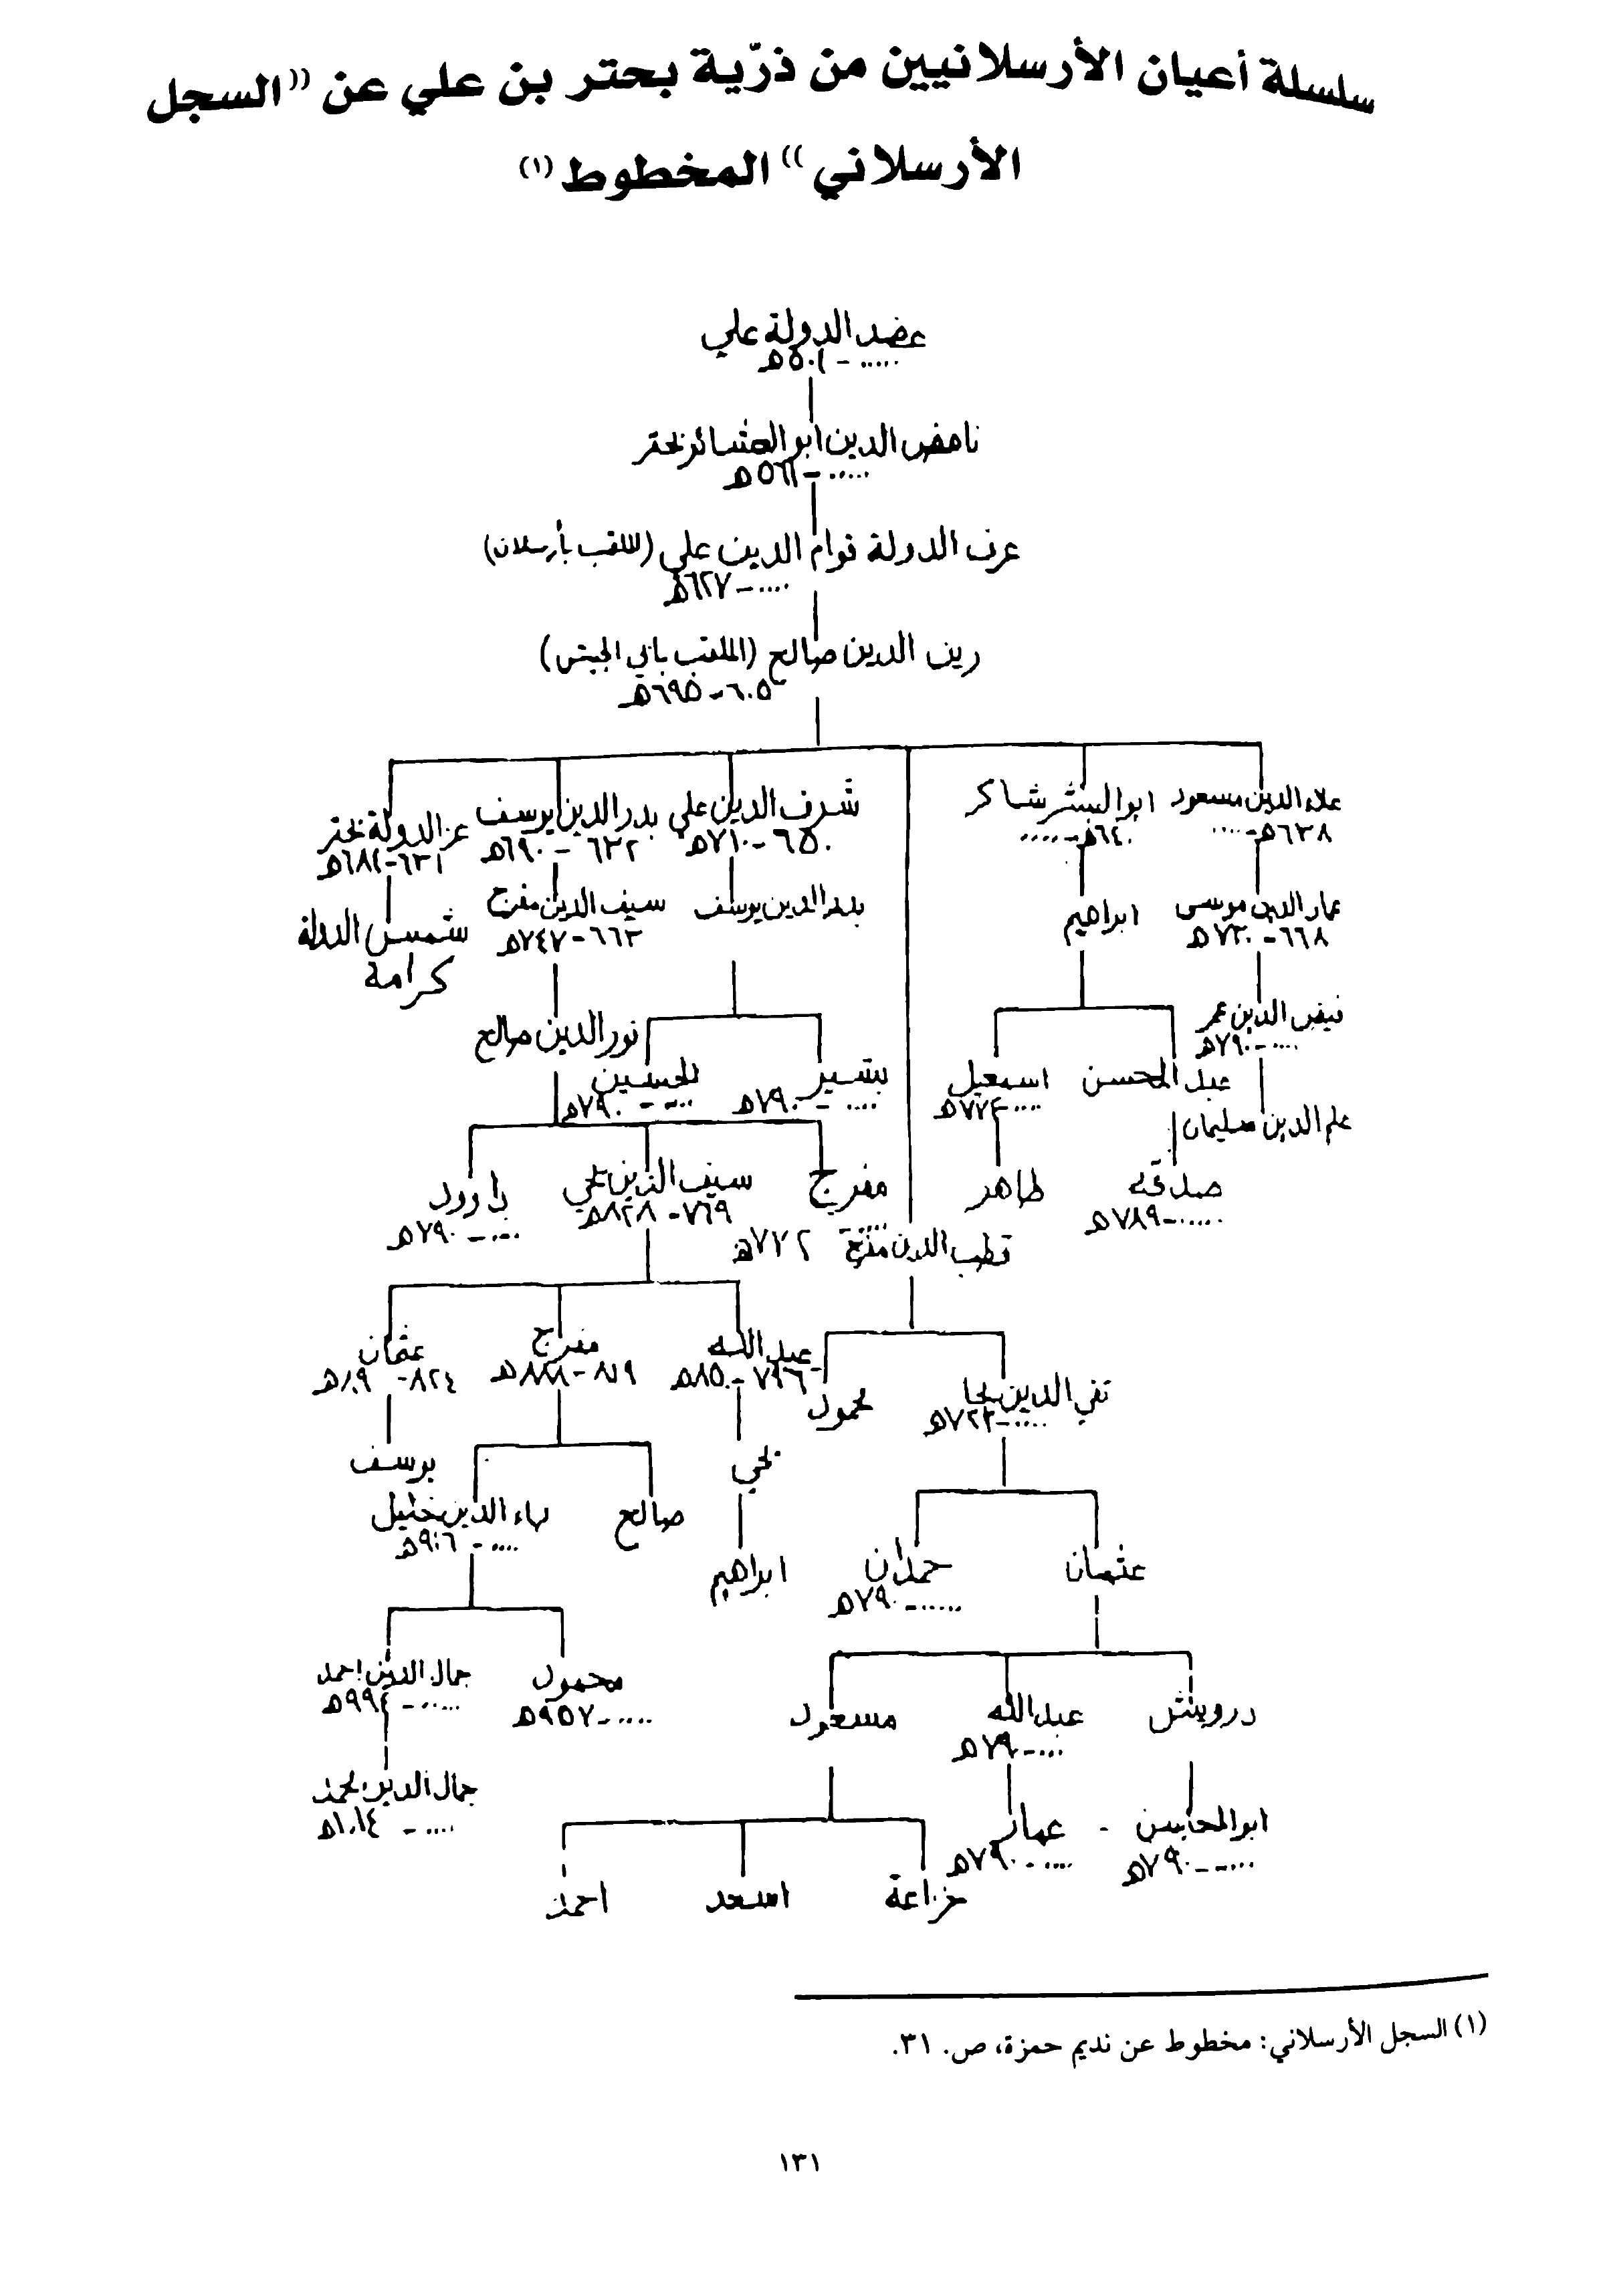 سلسلة أعيان الأرسلانيين من ذرّية بحتر بن علي عن ((السجل
الأرسلاني)) المخطوط (١)
عضد الدولة علي
..... - ٥٠٢هـ
ناهض الدين ابو العشائر بحتر
..... - ٥٦١هـ
عرف الدولة قوام الدين علي (الملقب بأرسلان)
.... - ٦٢٧هـ
زين الدين صالح (الملقب بابي الجيش)
٦٠٥ - ٦٩٥هـ
علاء الدين مسعود
٦٣٨هـ - ....
ابو البشر شاكر
٦٤٠هـ - .....
شرف الدين علي
٦٥٠ - ٧١٠هـ
بدر الدين يوسف
٦٣٢ - ٦٩٠هـ
عز الدولة بحتر
٦٣١ - ٦٨٢هـ
عماد الدين موسى
٦٦٨ - ٧٣٠هـ
ابراهيم
بدر الدين يوسف
سيف الدين مفرج
٦٦٣ - ٧٤٧هـ
شمس الدولة
كرامة
عمر
.... - ٧٩٠هـ
نور الدين صالح
عبد المحسن
اسمعيل
.... - ٧٧٤هـ
بشير
.... - ٧٩٠هـ
الحسين
.... - ٧٩٠هـ
علم الدين سليمان
صدقة
..... - ٧٨٩هـ
طاهر
مفرج
سيف الدين علي
٧٦٩ - ٨٢٨هـ
داوود
.... - ٧٩٠هـ
قطب الدين مفرج ..... ٧٧٢هـ
عبد الله
٧٩٦ - ٨٥٠هـ
مفرج
٨١٩ - ٨٨٨هـ
عثمان
٨٢٤ -
تقي الدين نجا
.... - ٧٢٣هـ
محمود
يحي
يوسف
صالح
بهاء الدين خليل
.... - ٩٠٦هـ
ابراهيم
عثمان
حمدان
..... - ٧٩٠هـ
محمود
.... - ٩٥٧هـ
جمال الدين احمد
..... - ٩٩٤هـ
درويش
عبد الله
.... - ٧٩٠هـ
مسعود
جمال الدين محمد
.... - ١٠١٤هـ
ابو المحاسن
.... - ٧٩٠هـ
عمار
.... - ٧٩٠هـ
خزاعة
اسعد
احمد
(١) السجل الأرسلاني: مخطوط عن نديم حمزة، ص. ٣١.
١٣١